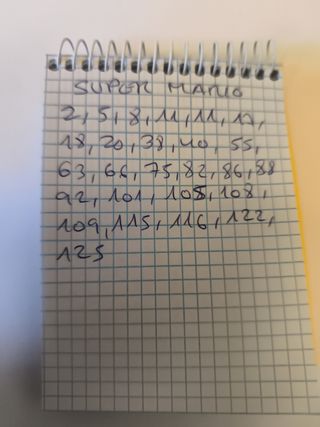 SUPER MARIO
2, 5, 8, 11, 11, 17,
18, 20, 38, 40, 55,
63, 66, 75, 82, 86, 88
92, 101, 105, 108,
109, 115, 116, 122,
125